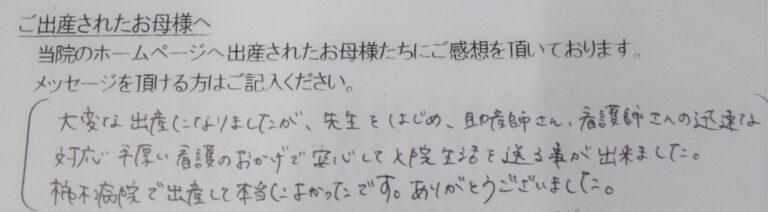 ご出産されたお母様へ
当院のホームページへ出産されたお母様たちにご感想を頂いております。
メッセージを頂ける方はご記入ください。
大変な出産になりましたが、先生をはじめ、助産師さん、看護師さんの迅速な
対応 手厚い看護のおかげで安心して入院生活を送る事が出来ました。
柿木病院で出産して本当によかったです。ありがとうございました。